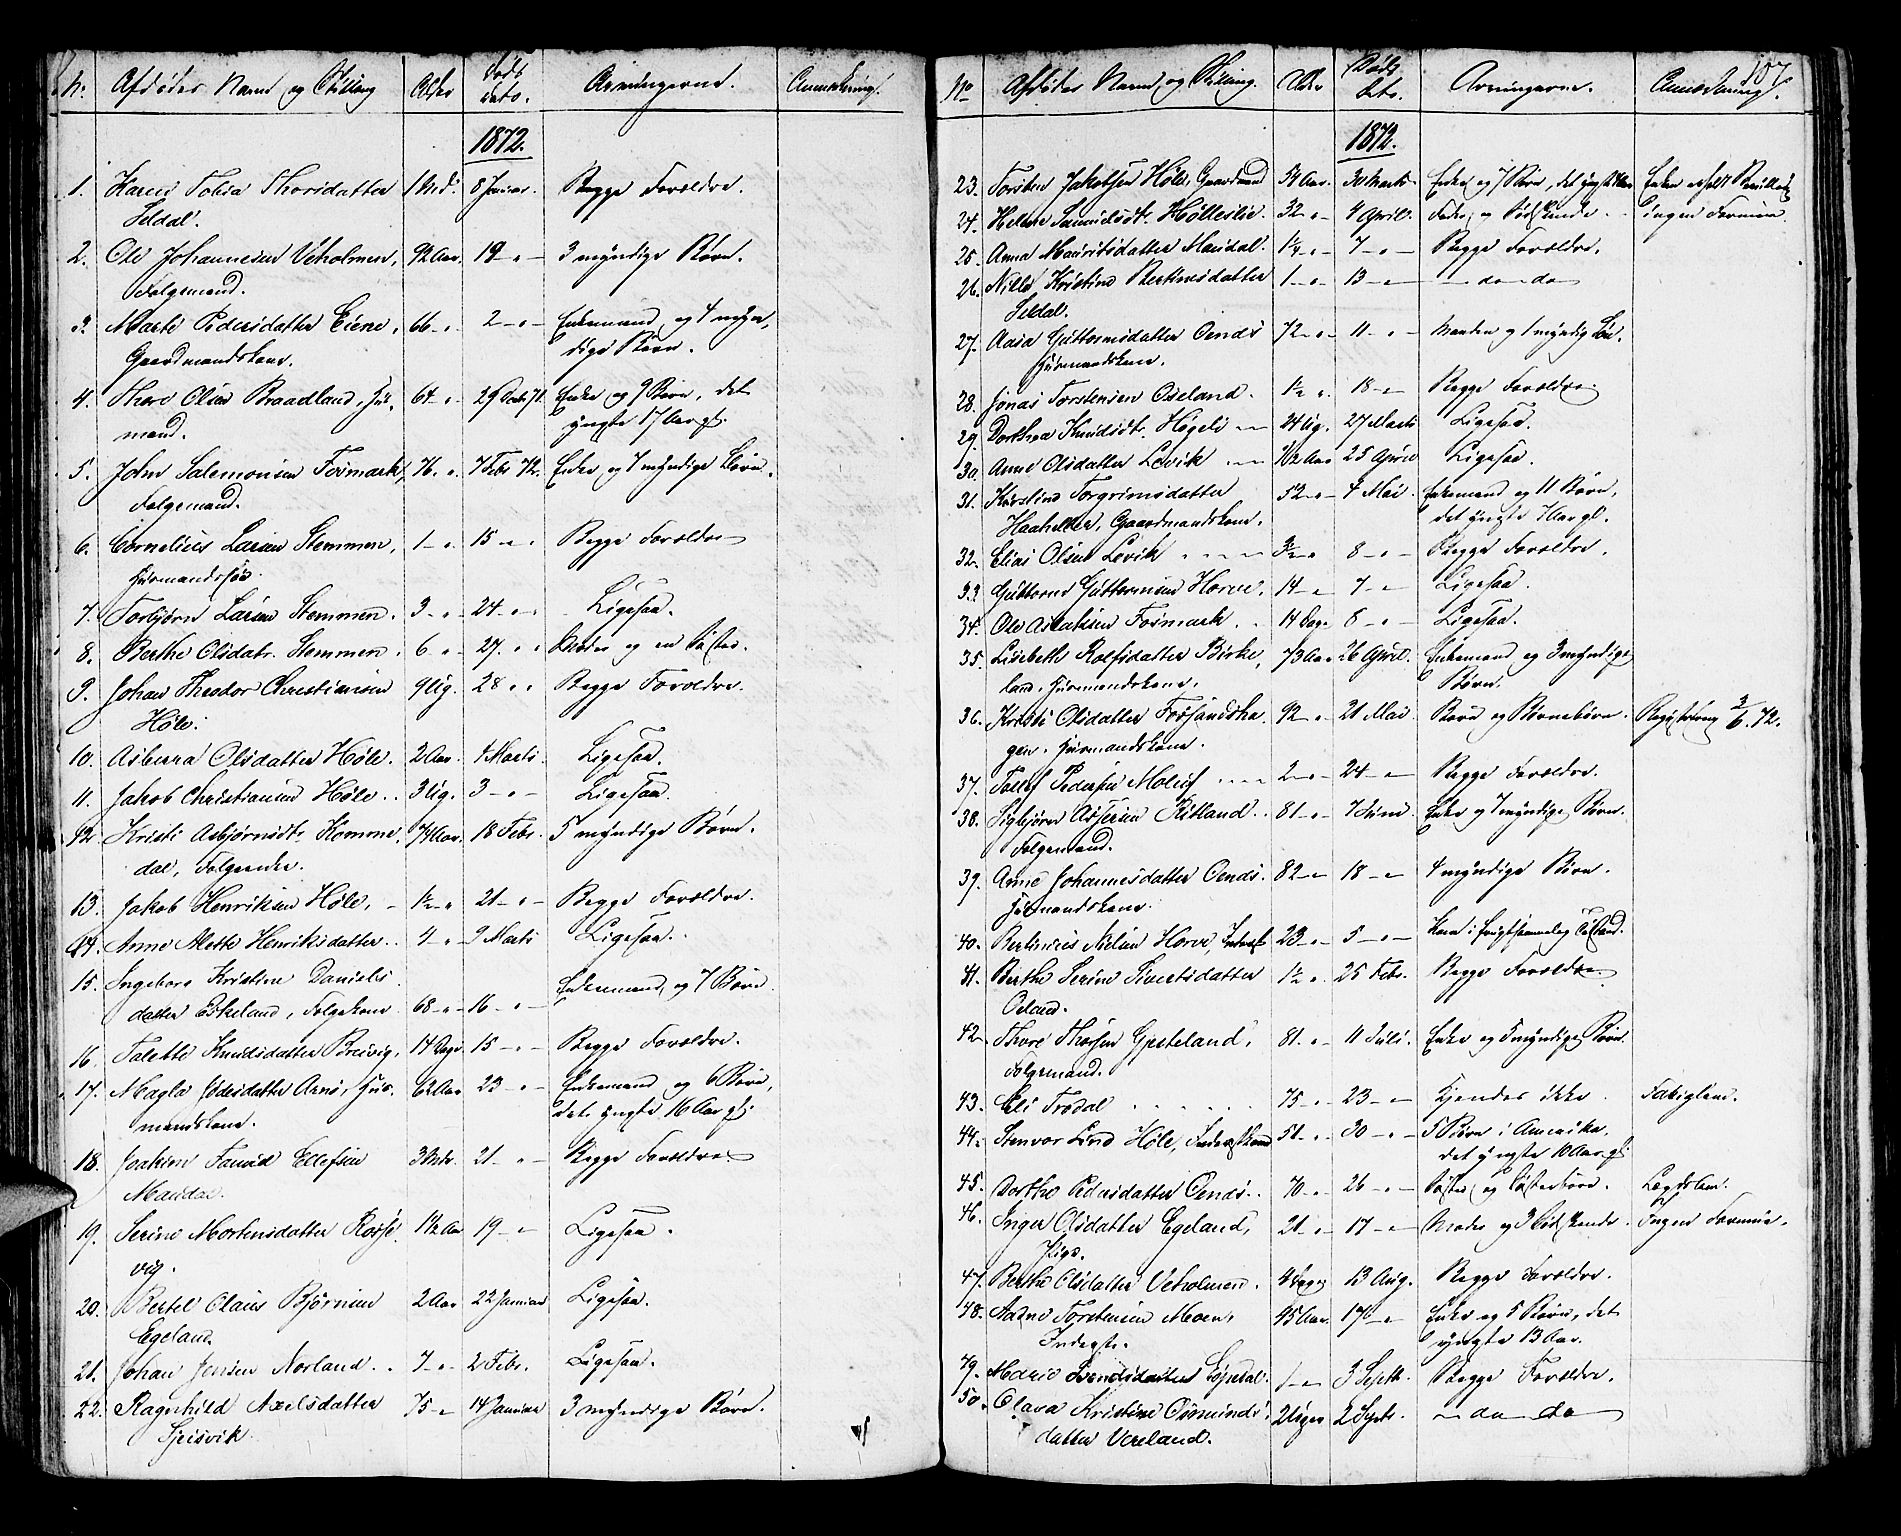 No. Afdødes Navn og Stilling Alder Døds dato. Arvingerne. Anmærkning.
1872.
1. Karen Tobia Thorsdatter 1 Md. 8 Januar. Begge Forældre.
Seldal.
2. Ole Johannesen Veholmen, 92 Aar. 19 -"- 3 myndige Børn.
Følgemand.
3. Marte Pedersdatter Eiene, 66 -"- 2 -"- Enkemand og 4 myn-
Gaardmandskone. dige Børn.
4. Thore Olsen Braadland, Hus- 64 -"- 29 Decb. 71. Enke og 9 Børn, det
mand. yngste 17 Aar gl.
5. John Salemonsen Fosmark, 76 -"- 7 Febr 72. Enke og 7 myndige Børn.
Følgemand.
6. Cornelius Larsen Stemmen, 1 -"- 15 -"- Begge Forældre
Husmandssøn.
7. Torbjørn Larsen Stemmen. 3 -"- 24 -"- Ligesaa.
8. Berthe Olsdatr. Stemmen. 6 -"- 27. -"- Moder og en Søster.
9. Johan Theodor Christiansen 9 Ug. 28 -"- Begge Forældre.
Høle.
10. Asberra Olsdatter Høle. 2 Aar. 1 Marts Ligesaa.
11. Jakob Christiansen Høle. 3 Ug. 3 -"- Ligesaa.
12. Kristi Asbjørnsdt. Komme- 74 Aar. 18 Febr. 5 myndige Børn.
dal, Følgeenke.
13. Jakob Henriksen Høle, ½ -"- 21 -"- Begge Forældre.
14. Anne Mette Henriksdatter. 4 -"- 9 Marts Ligesaa.
15. Ingeborg Kristine Daniels-
datter Eskeland, Følgekone 68 -"- 16 -"- Enkemand og 7 Børn
16. Talette Knudsdatter Breivig, 14 Dage 15 -"- Begge Forældre.
17. Magla Jødesdatter Arnø, Hus- 62 Aar 23 -"- Enkemand og 6 Børn,
mandskone. det yngste 16 Aar gl.
18. Joakim Tønnes Ellefsen 3 Mdr. 21 -"- Begge Forældre.
Maudal.
19. Serine Mortensdatter Rosse- 1½ Aar 19 -"- Ligesaa.
vig.
20. Bertel Olaus Bjørnsen 2 Aar 22 Januar Ligesaa.
Egeland.
21. Johan Jensen Norland. 7 -"- 2 Febr. Ligesaa.
22. Ragnhild Axelsdatter 75 -"- 14 Januar 3 myndige Børn.
Speisvik.
107.
No Afdødes Navn og Stilling. Alder Døds Dto. Arvingerne. Anmærkning.
1872.
23. Torsten Jakobsen Høle, Gaardmand 34 Aar. 30 Marts Enke og 7 Børn, det yngste
24. Helene Samuelsdt. Hølleslie. 32 -"- 4 April. Fader og Sødskende. Ingen Formue.
25. Anna Mauritsdatter Maudal. 1½ -"- 7 -"- Begge Forældre.
26. Nille Kristine Bertinsdatter 1 -"- 13 -"- -do-do-
Seldal.
27. Aasa Guttormsdatter Oends 72 -"- 11 -"- Manden og 1 myndig Søn.
Husmandskone.
28. Jonas Torstensen Oseland. 1½ " 18 -"- Begge Forældre.
29. Dorthea Knudsdt. Høgeli 24 Ug. 27 Marts Ligesaa.
30. Anne Olsdatter Levik 10½ Aar 25 April Ligesaa.
31. Kirstine Torgrimsdatter 52 -"- 4 Mai. Enkemand og 11 Børn,
Haaheller, Gaardmandskone. det yngste 7 Aar gl.
32. Elias Olsen Levik 3½ " 8 -"- Begge Forældre.
33. Guttorm Guttormsen Horve. 14 -"- 7 -"- Ligesaa.
34. Ole Aslaksen Fosmark. 14 Dage 8 -"- Ligesaa.
35. Lisebeth Rolfsdatter Birke- 73 Aar 26 April. Enkemand og 3 myndige
land, Husmandskone. Børn.
36. Kristi Olsdatter Fossandsha- 92 -"- 21 Mai Børn og Børnebørn. Registrering 3/6. 72.
gen. Husmandskone.
37. Tollef Pedersen Molaug 2 -"- 24 -"- Begge Forældre.
38. Sigbjørn Asgersen Kitland. 81 -"- 7 Juni Enke og 7 myndige Børn.
Følgemand.
39. Anne Johannesdatter Oends. 82 -"- 18 -"- 4 myndige Børn.
Husmandskone.
40. Bertinius Nielsen Horve, Inderst 23 -"- 5 -"- Kone i frugtsommelig Tilstand.
41. Berthe Serine Sivertsdatter ½ " 25 Febr. Begge Forældre.
Osland.
42 Thore Thorsen Gjeteland, 81. -"- 11 Juli. Enke og 5 myndige Børn.
Følgemand.
43. Eli Trodal 75 -"- 23 -"- Kjendes ikke. Fattiglem.
44. Stenvor Lind Høle, Inderstkone 51 -"- 30 -"- 5 Børn i Amerika.
det yngste 10 Aar gl.
45. Dorthe Pedersdatter Oends. 70 -"- 26 -"- Søster og Søsterbørn. Lægdslem.
46. Inger Olsdatter Egeland, 21 -"- 17 -"- Moder og 3 Sødskende. Ingen Formue.
Pige.
47. Berthe Olsdatter Veholmen. 4 Dage 13 Aug. Begge Forældre.
48. Aadne Torstensen Moen, 45 Aar. 17 -"- Enke og 5 Børn, det
Inderste. yngste 13 Aar.
49. Marie Svendsdatter Løgedal. 1 -"- 3 Septb. Begge Forældre.
50. Olava Kristine Osmunds- 2 Uger 2 Septb. -do-do-
datter Vereland.